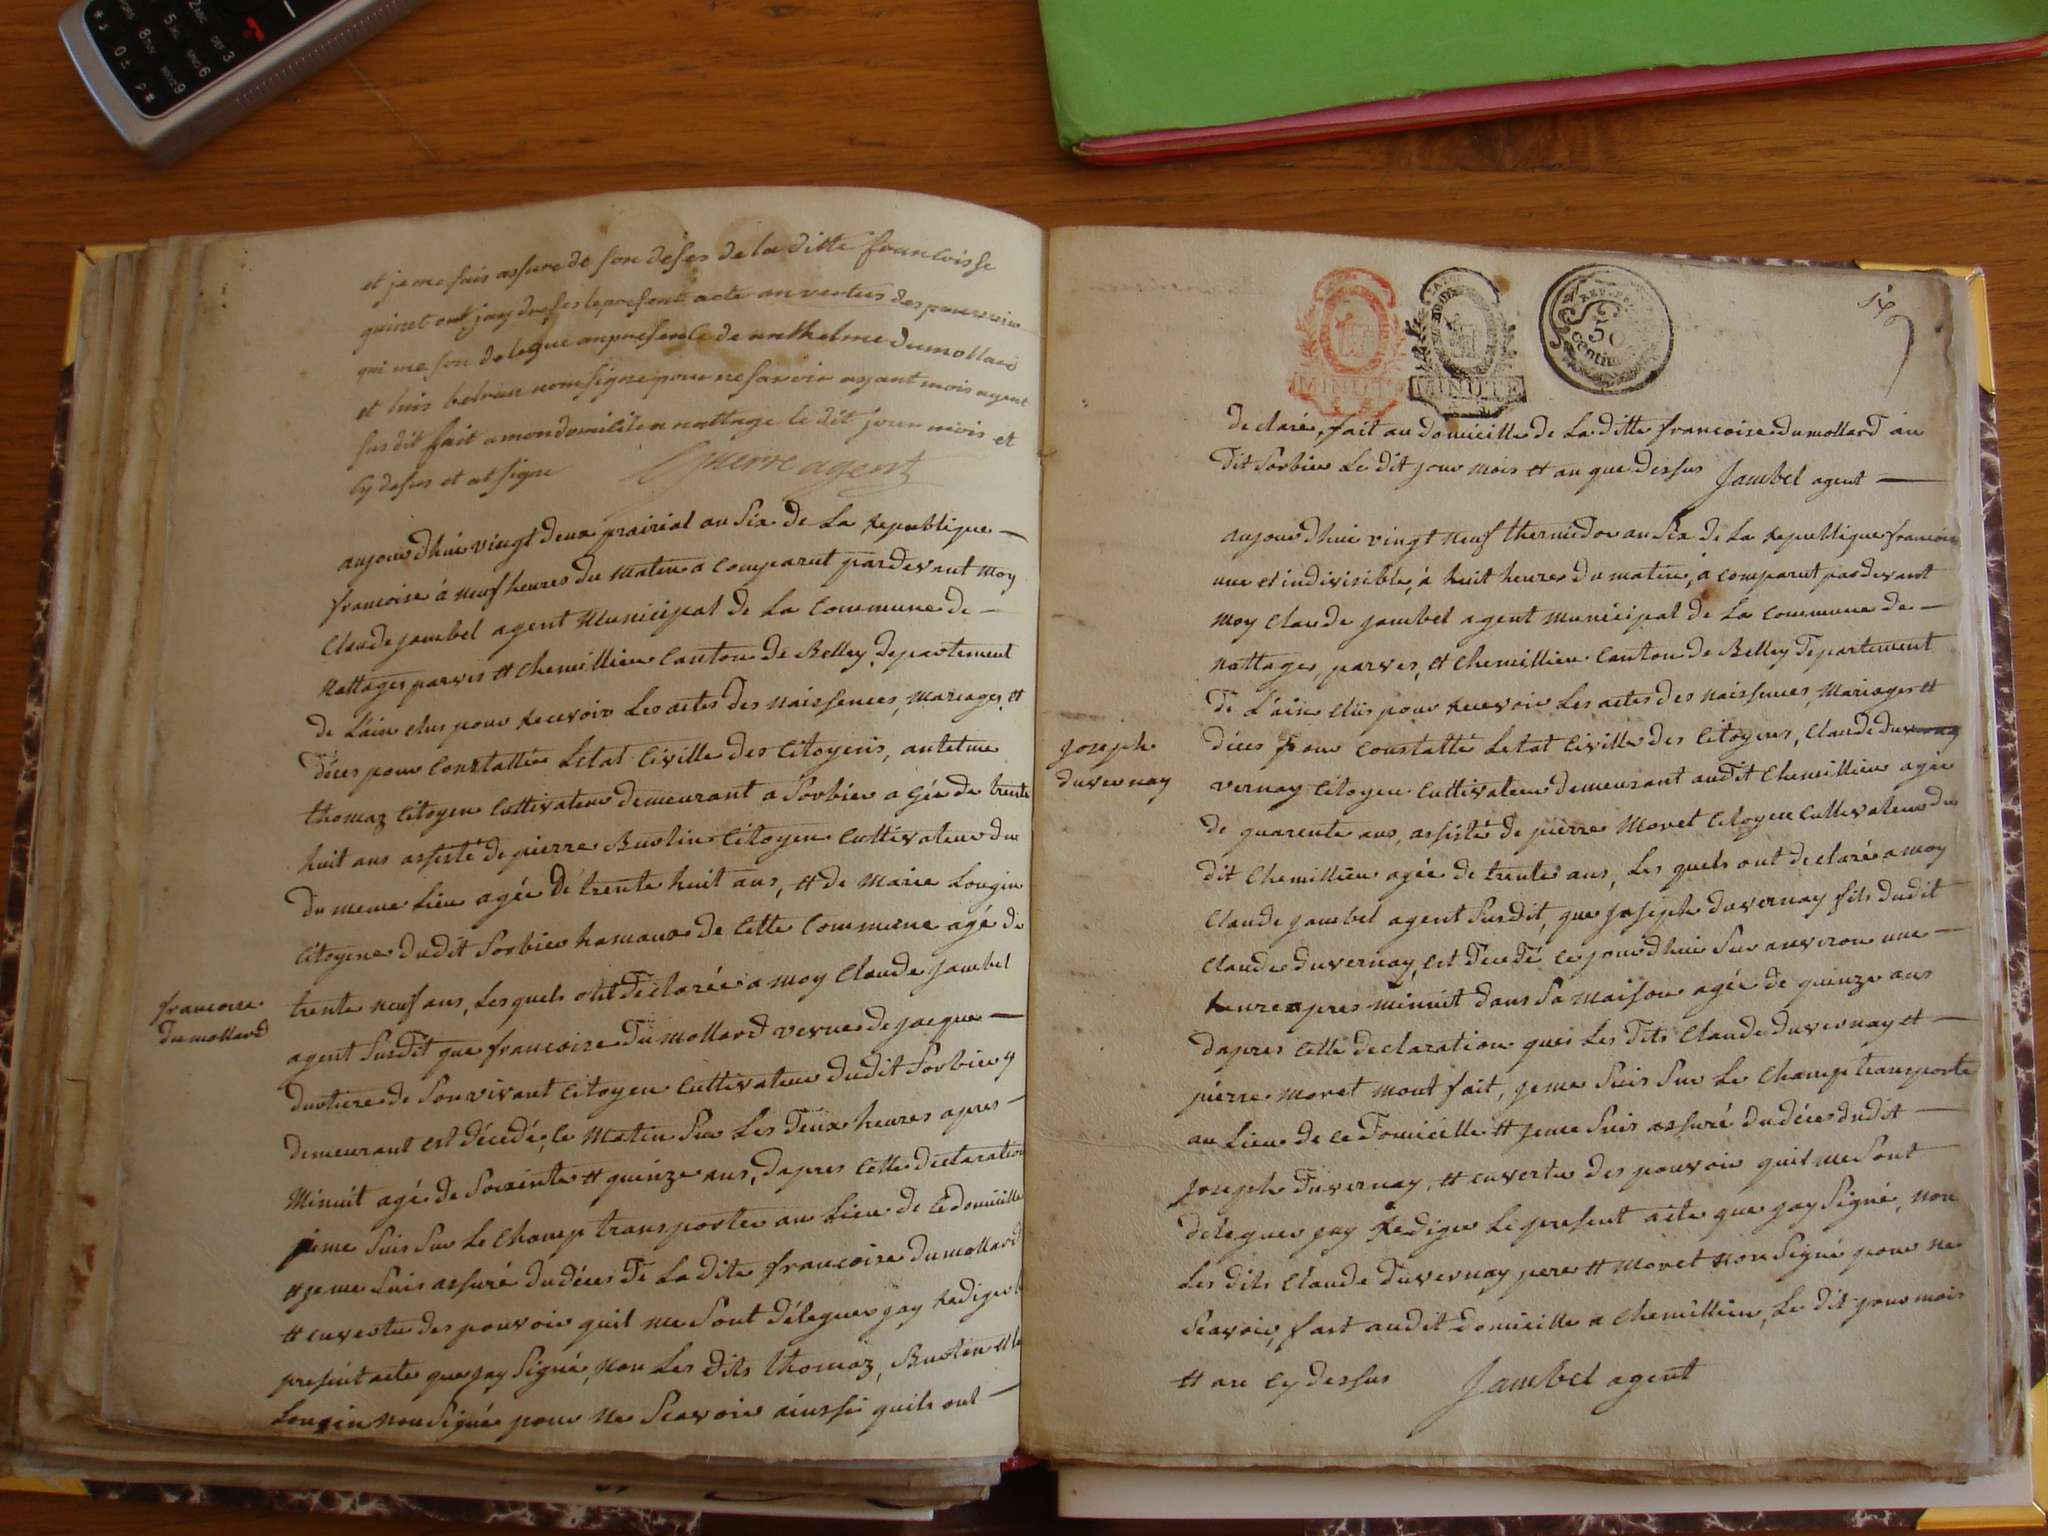 et je me suis assure de son deses de la ditte francoisse
quinet out jay dreses le present acte an vertus des pouvoir
qui me son delegue an presence de anthelme dumollard
et luis belrin nom signe pour ne savoir ayant mois agent
susdit fait a mon domicile a nattage le dit jour mois et
cy desus et at signe
guerre agent
aujourdhui vingt deux prairial an six de La Republique
francoise à neuf heures du matin a comparut pardevant moy
Claude jambel agent Municipal de La Commune de
Nattages parves et Chemillieu Canton de Belley departement
de L'ain elus pour Recevoir Les actes des naissences, mariages, et
déces pour Constattée Letat Civille des Citoyens, antelme
thomaz Citoyen Cultivateur demeurant a Sorbier agée de trente
huit ans assisté de pierre Burlin Citoyen Cultivateur du
du meme Lieu agée de trente huit ans, et de Marie Longin
Citoyene dudit Sorbier hamaux de Cette Commune agé de
francoise
dumollard
trente neuf ans, Lesquels ont declarée a moy Claude jambel
agent Susdit que francoise Dumollard vevue de jacque
de Son vivant Citoyen Cultivateur dudit Sorbier y
demeurant est décedé, ce Matin Sur Les deux heures apres
Minuit agé de Soixinte et quinze ans, dapres Cette declaration
je me Suis Sur Le Champ transporter au Lieu de Ce domicille
et je me Suis assuré du déces de La dite francoise dumollard
et en vertu des pouvoir quil me Sont déleguer jay Rediger le
present acte que jay Signé, non Les dits thomaz, Burlin et la
Longin non Signée pour Ne Scavoir ainssi quils ont
MINUTE
MINUTE
REP. FRA.
50
Centimes
declaré, fait au domicille de La ditte francoise dumollard au
dit Sorbier Le dit jour mois et an que dessus Jambel agent
aujourdhui vingt neuf thermidor an Six de La Republique francoise
une et indivisible, à huit heures du matin, a comparut pardevant
moy Claude jambel agent municipal de La Commune de
nattages, parves, et Chemillieu Canton de Belley departement
de L'ain elüs pour Recevoir Les actes des naissences, Mariages et
Joseph
duvernay
déces pour Constatté Letat Civille des Citoyens, Claude du
vernay Citoyen Cultivateur demeurant audit Chemillieu agée
de quarente ans, assisté de pierre Moret Citoyen Cultivateur du
dit Chemillieu agée de trente ans, Les quels ont declaré a moy
Claude jambel agent Susdit, que joseph duvernay fils dudit
Claude duvernay, est decedé ce jourdhui Sur anviron une
heure apres minuit dans Sa maison agée de quinze ans
dapres Cette declaration que Les dits Claude duvernay et
pierre moret mont fait, je me Suis Sur Le Champ transporte
au Lieu de Ce domicille et je me Suis assuré du déces dudit
joseph duvernay, et en vertu des pouvoir quil me Sont
deleguer jay Rediger Le present acte que jay Signé, non
Les dits Claude duvernay pere et Moret non Signé pour ne
Scavoir, fait audit domicille a Chemillieu, Le dit jour mois
et an cy dessus Jambel agent